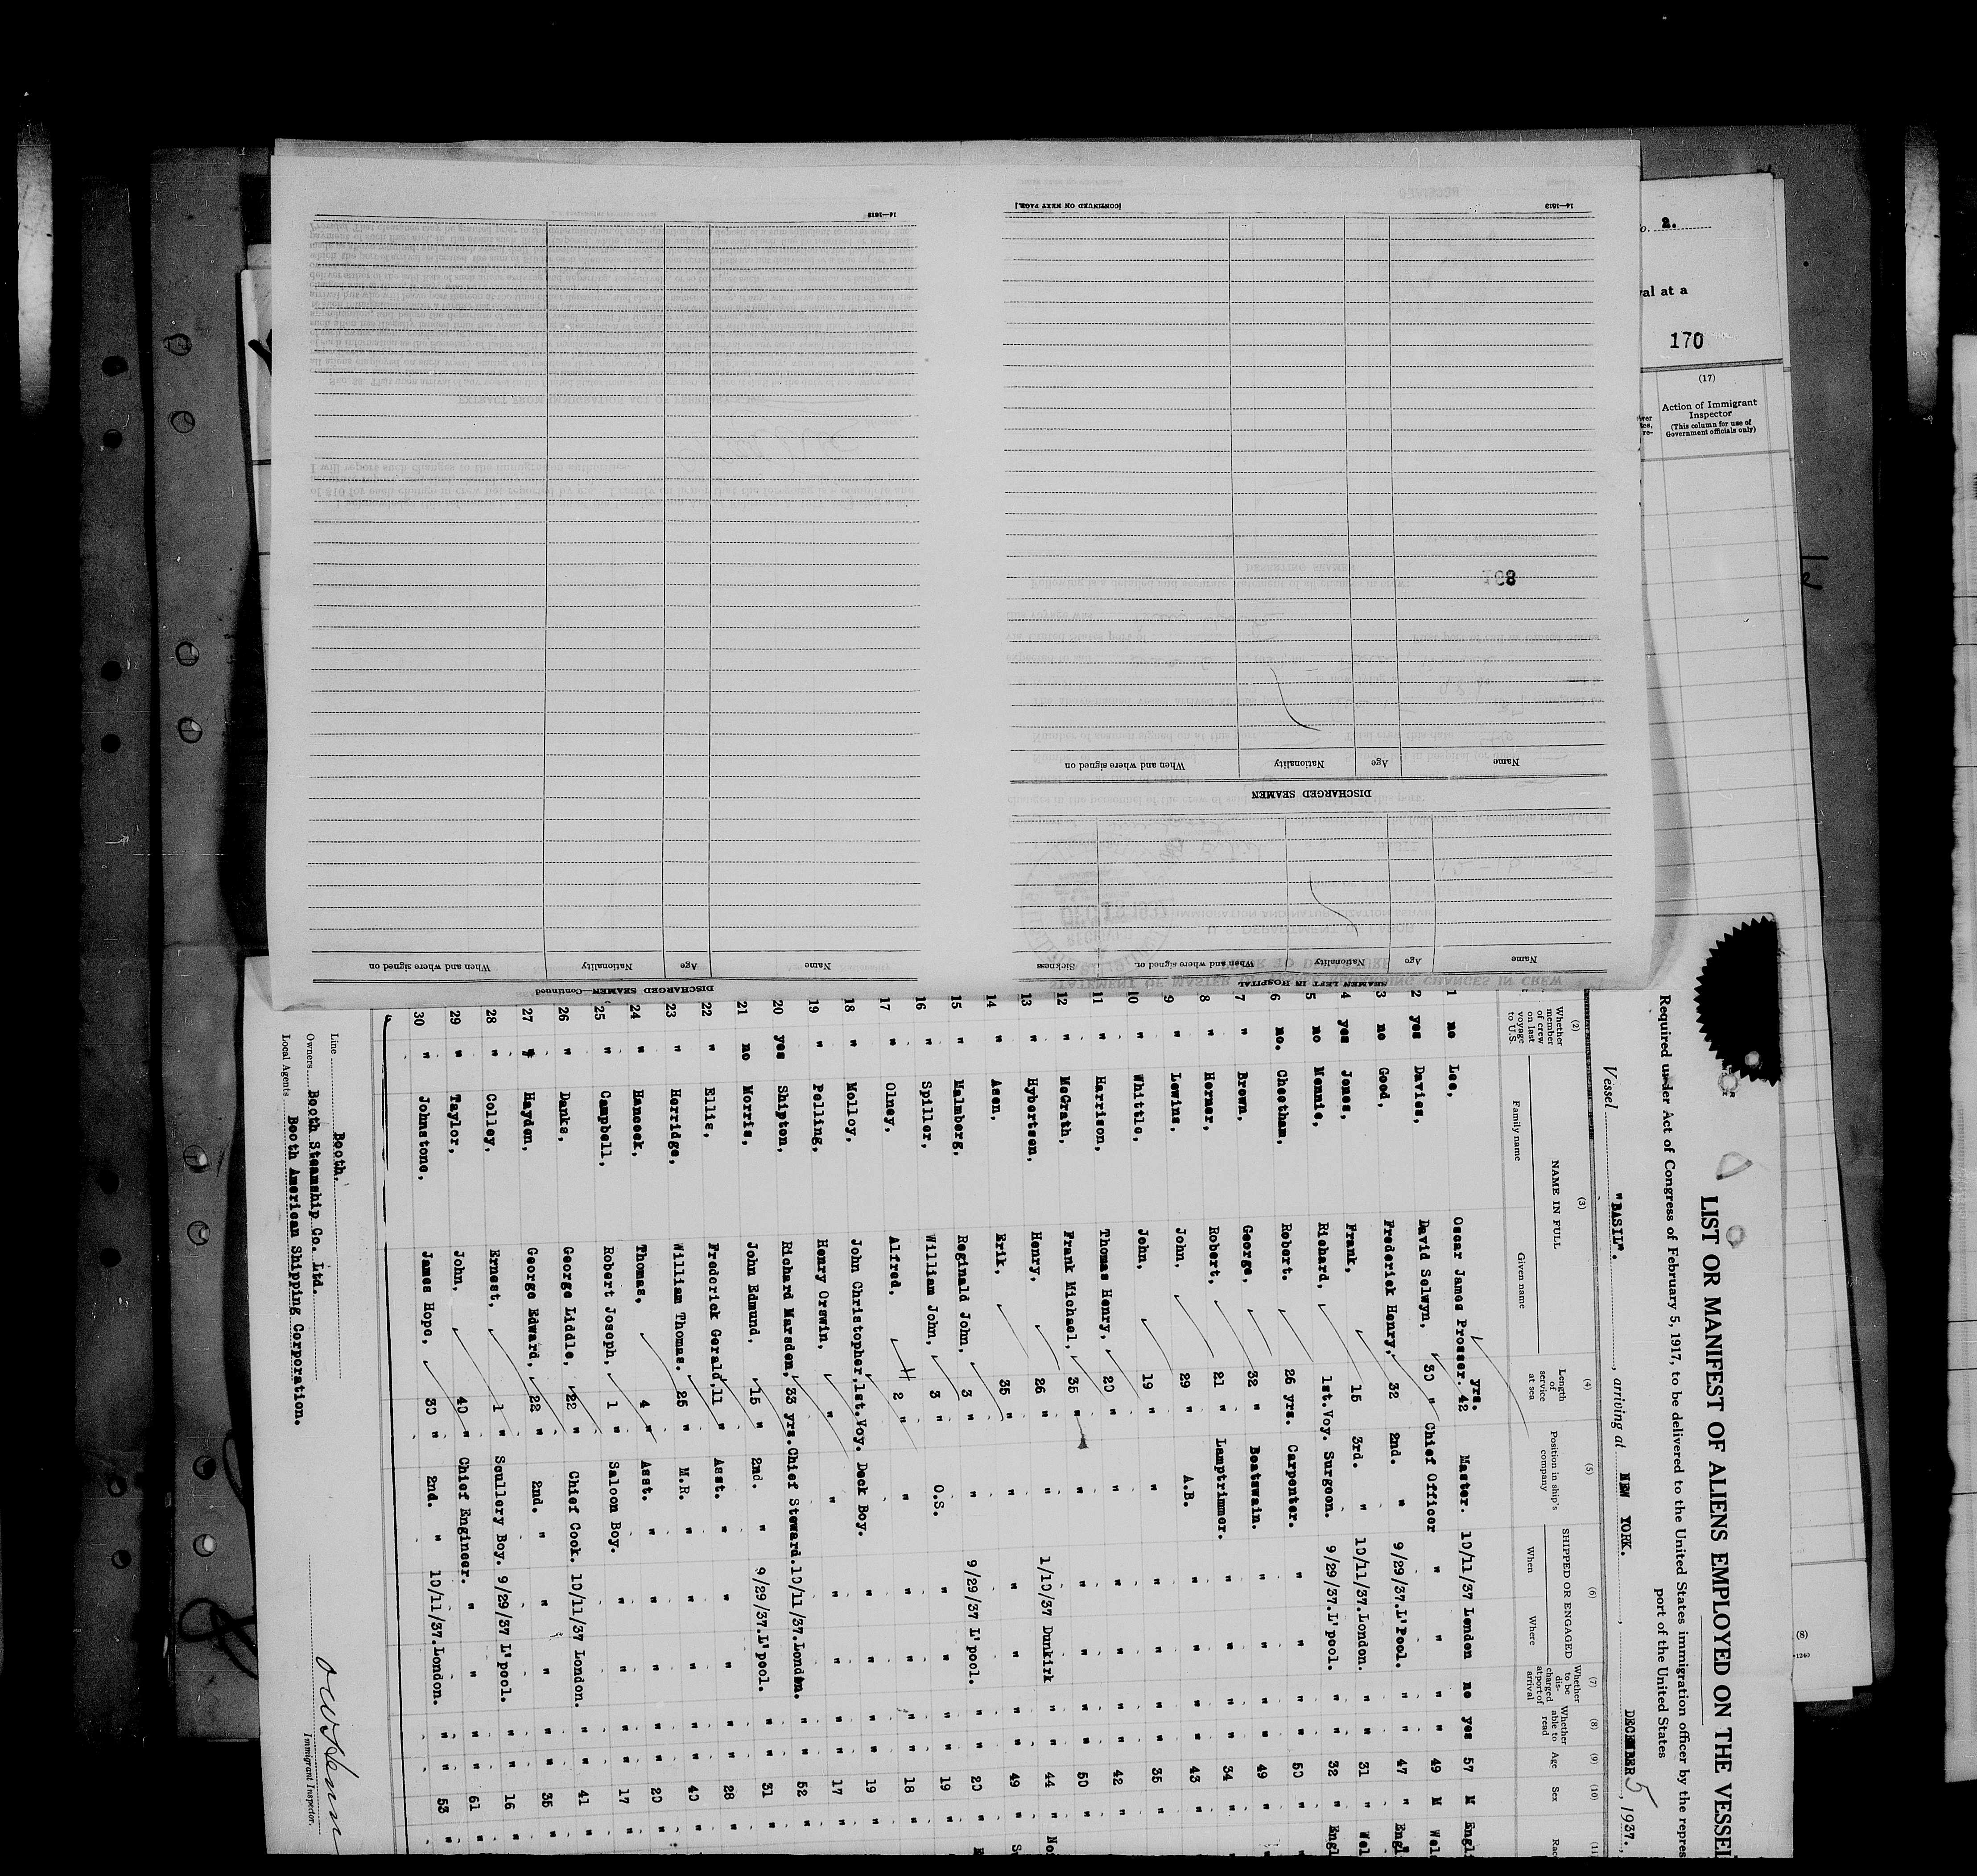 LIST OR MANIFEST OF ALIENS EMPLOYED ON THE VESSEL
Required under Act of Congress of February 5, 1917, to be delivered to the United States immigration officer by the repres
port of the United States
Vessel "BASIL". , arriving at NEW YORK. , DECEMBER 5, 1937.
(2) (3) (4) (5) (6) (7) (8) (9) (10) (11
Whether member of crew on last voyage to U.S. NAME IN FULL Family name Given name Length of service at sea Position in ship's company SHIPPED OR ENGAGED When Where Whether to be discharged at port of arrival Whether able to read Age Sex Rac
1 no Lee, Oscar James Prosser. yrs. 42 Master. 10/11/37 London no yes 57 M Engl
2 yes Davies, David Selwyn. 30 " Chief Officer " " " " 49 M Wel
3 no Good, Frederick Henry. 32 2nd. " 9/29/37.L'Pool. " " 47 " Engl
4 yes Jones, Frank, 15 3rd. " 10/11/37.London. " " 31 " Wel
5 no Mennie, Richard, 1st.Voy. Surgeon. 9/29/37.L'pool. " " 32 " Engl
6 no. Cheetham, Robert. 26 yrs. Carpenter. " " " " 50 "
7 " Brown, George, 32 " Boatswain. " " " " 49 "
8 " Horner, Robert, 21 " Lamptrimmer. " " " " 34 "
9 " Lewins, John, 29 " A.B. " " " " 43 "
10 " Whittle, John, 19 " " " " " " 35 "
11 " Harrison, Thomas Henry, 20 " " " " " " 42 "
12 " McGrath, Frank Michael, 35 " " " " " " 50 "
13 " Hybertsen, Henry, 26 " " 1/10/37 Dunkirk " " 44 " No
14 " Asen, Erik, 35 " " " " " " 49 " S
15 " Malmberg, Reginald John, 3 " " 9/29/37 L'pool. " " 20 "
16 " Spiller, William John, 3 " O.S. " " " " 19 "
17 " Olney, Alfred. 2 " " " " " " 18 "
18 " Molloy, John Christopher, 1st.Voy. Deck Boy. " " " " 19 "
19 " Pelling, Henry Orswin, " " " " " " 17 "
20 yes Shipton, Richard Marsden, 33 yrs. Chief Steward. 10/11/37.London. " " 52 "
21 no Morris, John Edmund, 15 " 2nd. " 9/29/37.L'pool. " " 31 "
22 " Ellis, Frederick Gerald, 11 " Asst. " " " " " 28 "
23 " Herridge, William Thomas. 25 " M.R. " " " " " 40 "
24 " Hancock, Thomas, 4 " Asst. " " " " " 20 "
25 " Campbell, Robert Joseph, 1 " Saloon Boy. " " " " 17 "
26 " Danks, George Liddle, 22 " Chief Cook. 10/11/37 London. " " 41 "
27 " Hayden, George Edward, 22 " 2nd. " " " " " 35 "
28 " Colley, Ernest, 1 " Scullery Boy. 9/29/37 L'pool. " " 16 "
29 " Taylor, John, 40 " Chief Engineer. " " " " 61 "
30 " Johnstone, James Hope, 30 " 2nd. " 10/11/37.London. " " 53 "
Line Booth.
Owners Booth Steamship Co. Ltd.
Local Agents Booth American Shipping Corporation.
Immigrant Inspector.
SEAMEN LEFT IN HOSPITAL
Name Age Nationality When and where signed on Sickness
DISCHARGED SEAMEN
Name Age Nationality When and where signed on
14—1613 [CONTINUED ON NEXT PAGE]
DISCHARGED SEAMEN—Continued
Name Age Nationality When and where signed on
14—1613
168
STATEMENT OF MASTER CHANGES IN CREW
RECEIVED
DEC 1937
2.
val at a
170
(17)
Action of Immigrant Inspector
(This column for use of Government officials only)
(8)
-1240